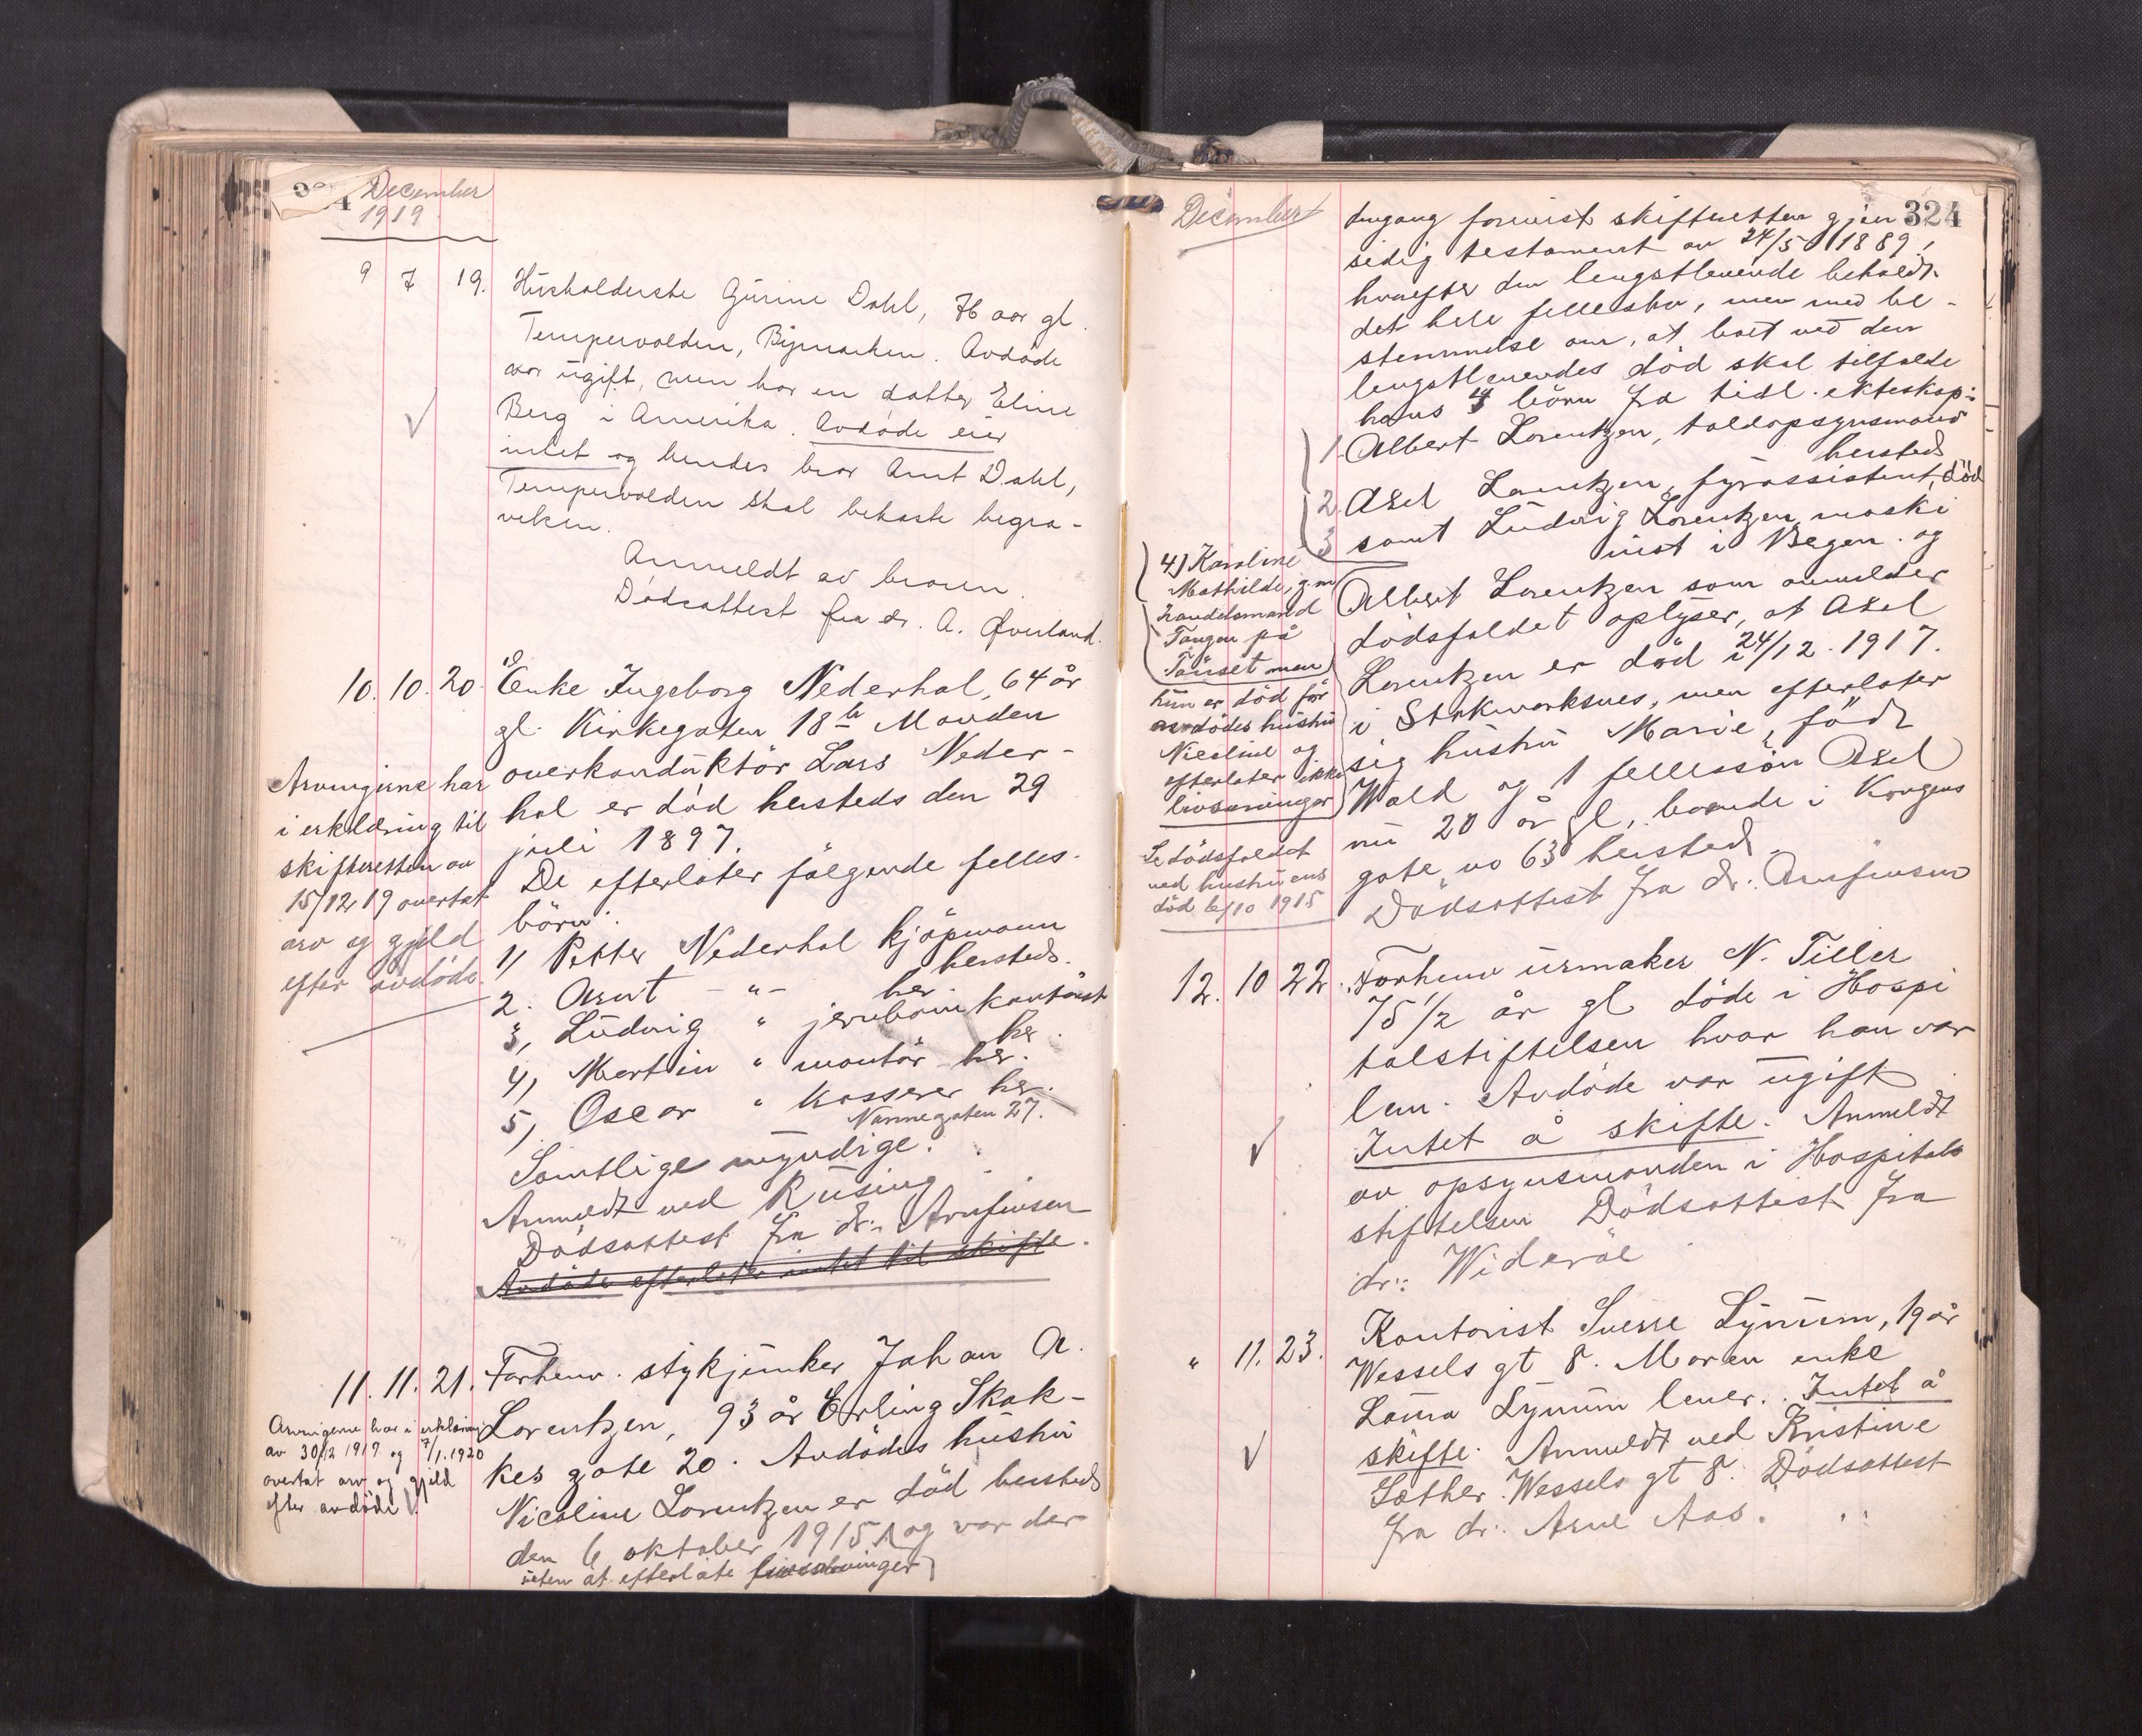 December
1919
9 7 19. Husholderske Gurine Dahl, 76 aar gl.
Tempervolden, Bymarken. Avdöde
var ugift, men har en datter Eline
Berg i Amerika. Avdöde eier
intet og hendes bror Arnt Dahl,
Tempervolden skal bekoste begra-
velsen.
Anmeldt av broren.
Dödsattest fra dr. A. Øverland.
10. 10. 20. Enke Ingeborg Nederhal, 64 år
gl. Kirkegaten 18 b Manden
overkonduktör Lars Neder-
hal er död hersteds den 29
juli 1897.
De efterlater fölgende felles-
börn:
1) Petter Nederhal kjöpmann
hersteds.
2. Arnt -"- her
3, Ludvig " jernbanekontorist
her
4) Martin " montör her.
5, Oscar " kasserer her.
Nannegaten 27.
Samtlige myndige.
Anmeldt ved Rusing
Dödsattest fra dr. Arnfinsen
Avdöde efterlater intet til skifte.
Arvingerne har
i erklæring til
skifteretten av
15/12 19 overtat
arv og gjeld
efter avdöde.
11. 11. 21. Forhenv. stykjunker Johan A.
Lorentzen, 93 år Erling Skak-
kes gate 20. Avdödes hustru
Nicoline Lorentzen er död hersteds
den 6 oktober 1915 og var der
uten at efterlate livsarvinger
Arvingerne har i erklæring
av 30/12 1919 og 7/1.1920
overtat arv og gjeld
efter avdöde
December
324
dengang forevist skifteretten gjen
sidig testament av 24/5 1889,
hvorefter den lengstlevende beholdt
det hele fellesbo, men med be-
stemmelse om, at boet ved den
lengstlevendes död skal tilfalde
hans 4 börn fra tidl. ekteskap:
1. Albert Lorentzen, toldopsynsmand
hersteds
2. Axel Lorentzen, fyrassistent, död
3 samt Ludvig Lorentzen maski
nist i Bergen og
4) Karoline
Mathilde, g.m.
handelsmand
Tangen på
Tönset men
hun er död för
avdödes hustru
Nicoline og
efterlater ikke
livsarvinger
Se dödsfaldet
ved hustruens
död 6/10 1915
Albert Lorentzen som anmelder
dödsfaldet oplyser, at Axel
Lorentzen er död 24/12. 1917.
i Stokmarksnes, men efterlater
sig hustru Marie, född
Wold og 1 fellessön Axel
nu 20 år gl, boende i Kongens
gate no 63 hersted
Dödsattest fra dr. Arnfinsen
12. 10 22. Forhenv urmaker N. Tiller
75 1/2 år gl döde i Hospi
talstiftelsen hvor han var
lem. Avdöde var ugift
Intet å skifte. Anmeldt
av opsynsmanden i Hospitals
stiftelsen Dödsattest fra
dr. Wideröe
" 11. 23. Kontorist Sverre Lynum, 19 år
Wessels gt 8. Moren enke
Laura Lynum lever. Intet å
skifte. Anmeldt ved Kristine
Sæther Wessels gt 8. Dödsattest
fra dr. Arne Aas.